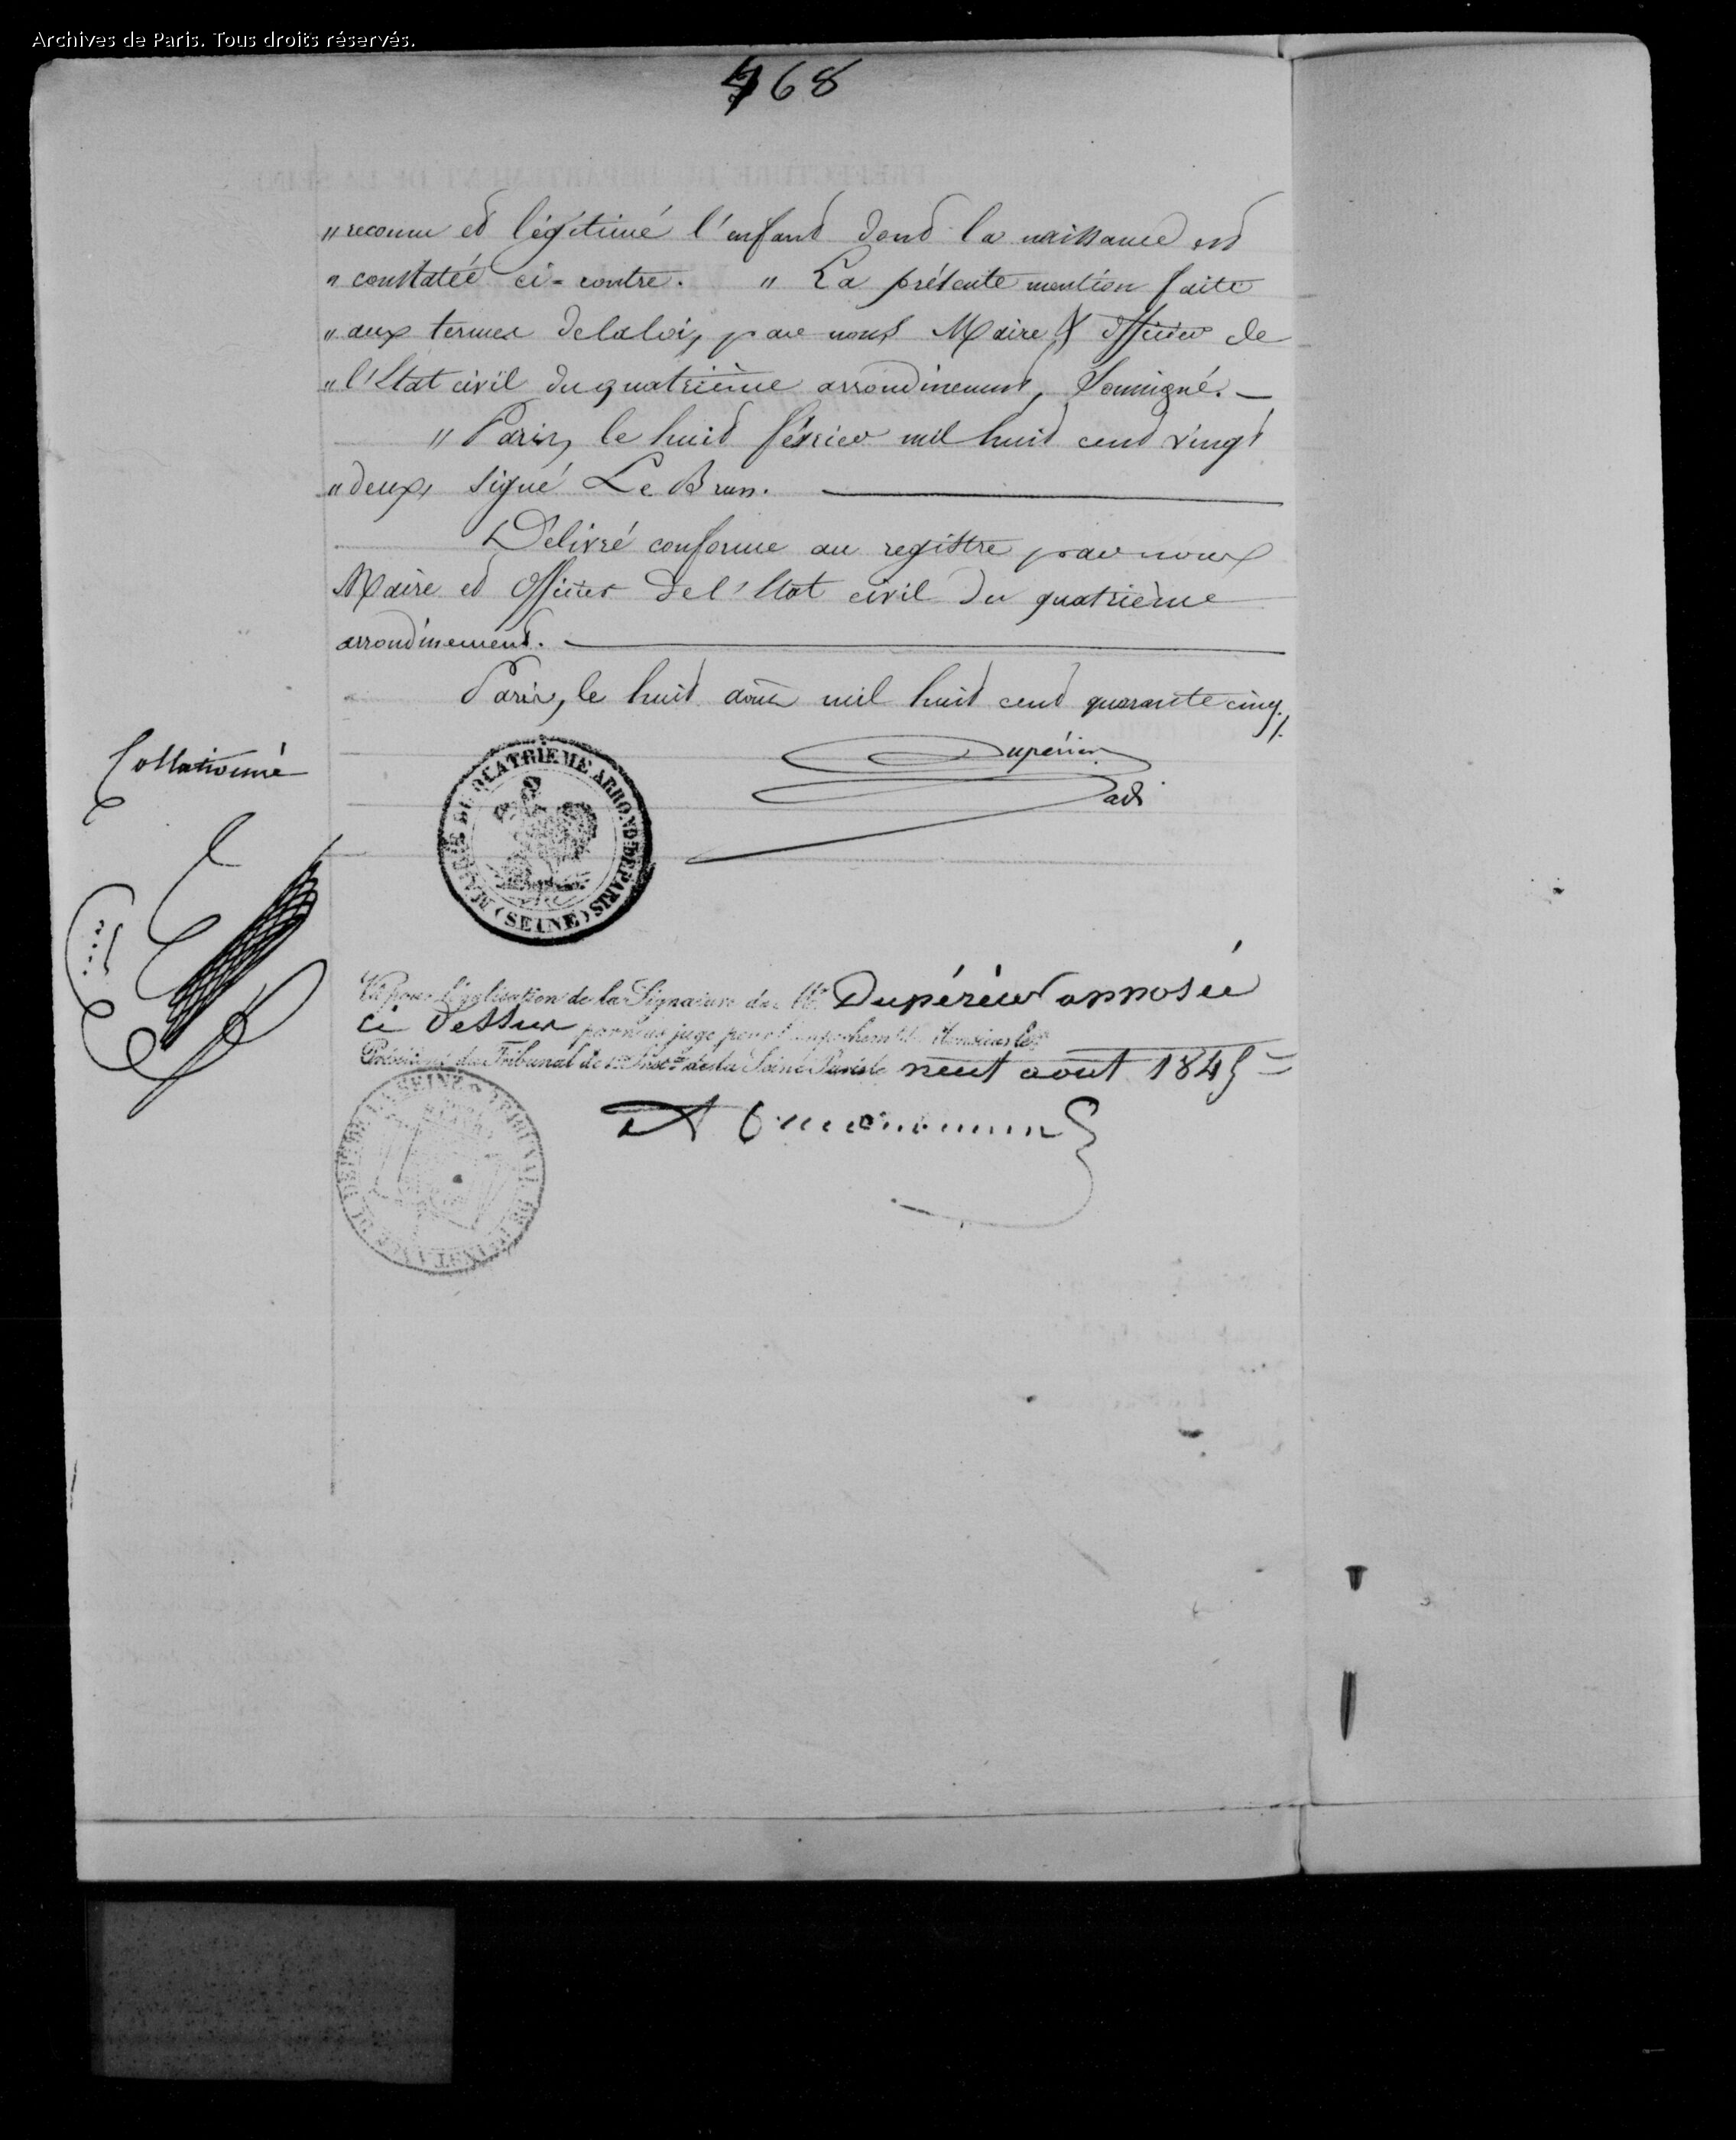 Archives de Paris. Tous droits réservés.
468
"reconnu et légitimé l'enfant dont la naissance est
"constatée ci-contre. " La présente mention faite
"aux termes de la loi, par nous Maire & officier de
"l'Etat civil du quatrième arrondissement, soussigné. —
"Paris, le huit février mil huit cent vingt
"deux, signé Le Brun.
Délivré conforme au registre par nous
Maire et officier de l'Etat civil du quatrième
arrondissement.
Paris, le huit août mil huit cent quarante cinq./.
Collationné
Dupérier
adt
MAIRIE DU QUATRIEME ARROND. DE PARIS (SEINE)
Vu pour légalisation de la Signature de Mr. Dupérier apposée
ci dessus par nous juge pour l'empêchement de Monsieur le
Président du Tribunal de 1re Inst. de la Seine Paris le neuf août 1845